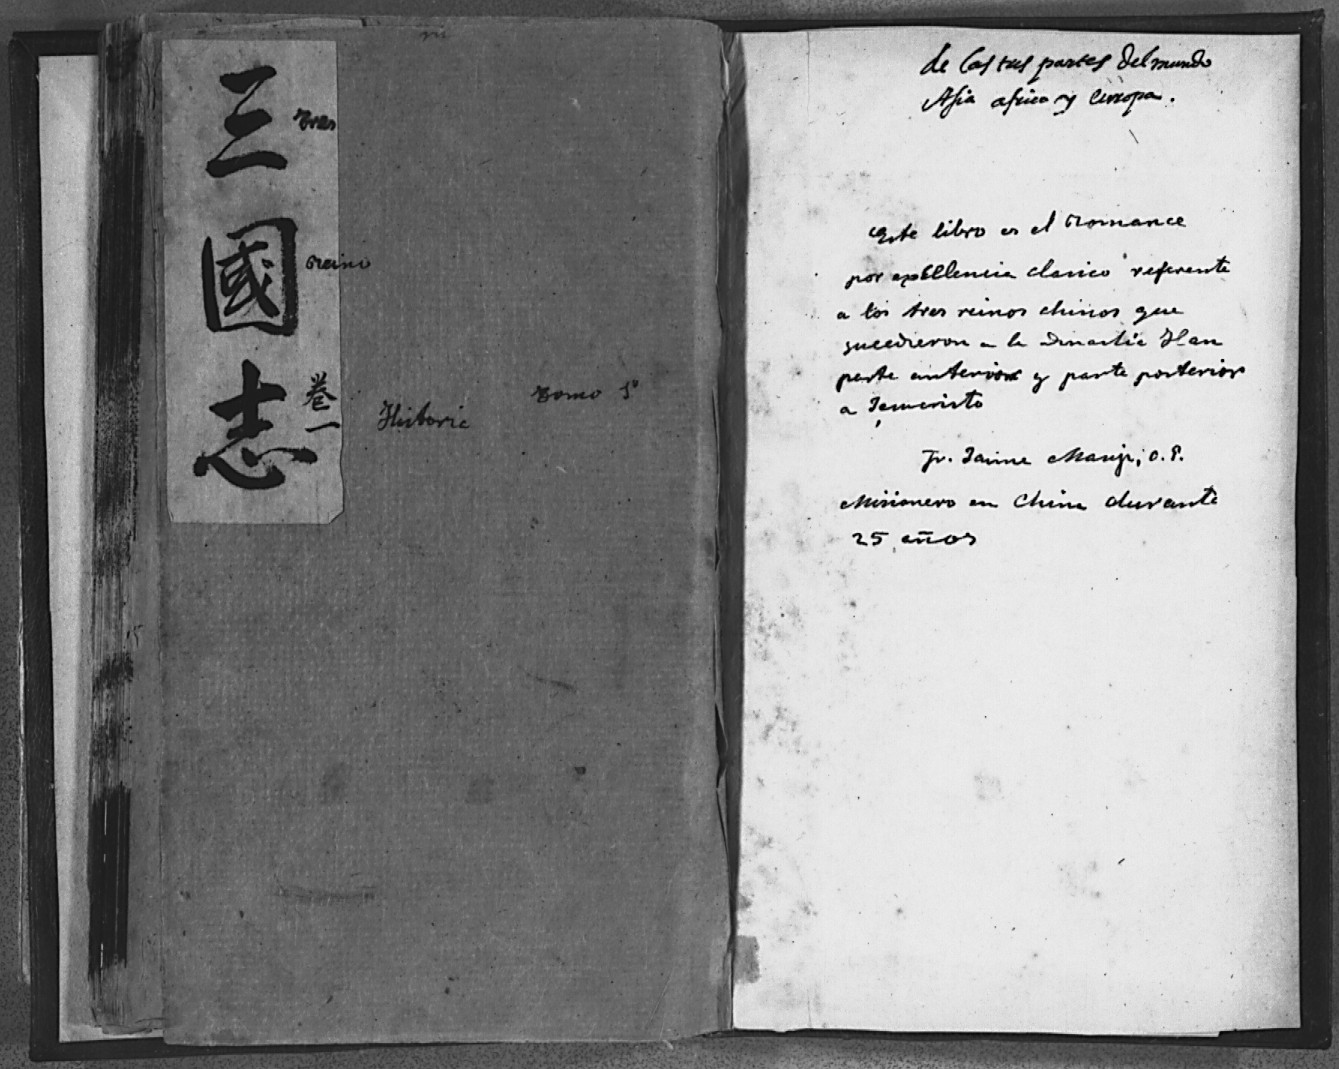 三國志
卷一
Tres
Reino
Historia
Tomo 1º
de las tres partes del mundo
Asia africa y europa.
Este libro es el Romance
por exellencia clasico referente
a los tres reinos chinos que
sucedieron a la dinastia Han
parte anterior y parte posterior
a Jesucristo
Fr. Jaime O.P.
Misionero en China durante
25 años